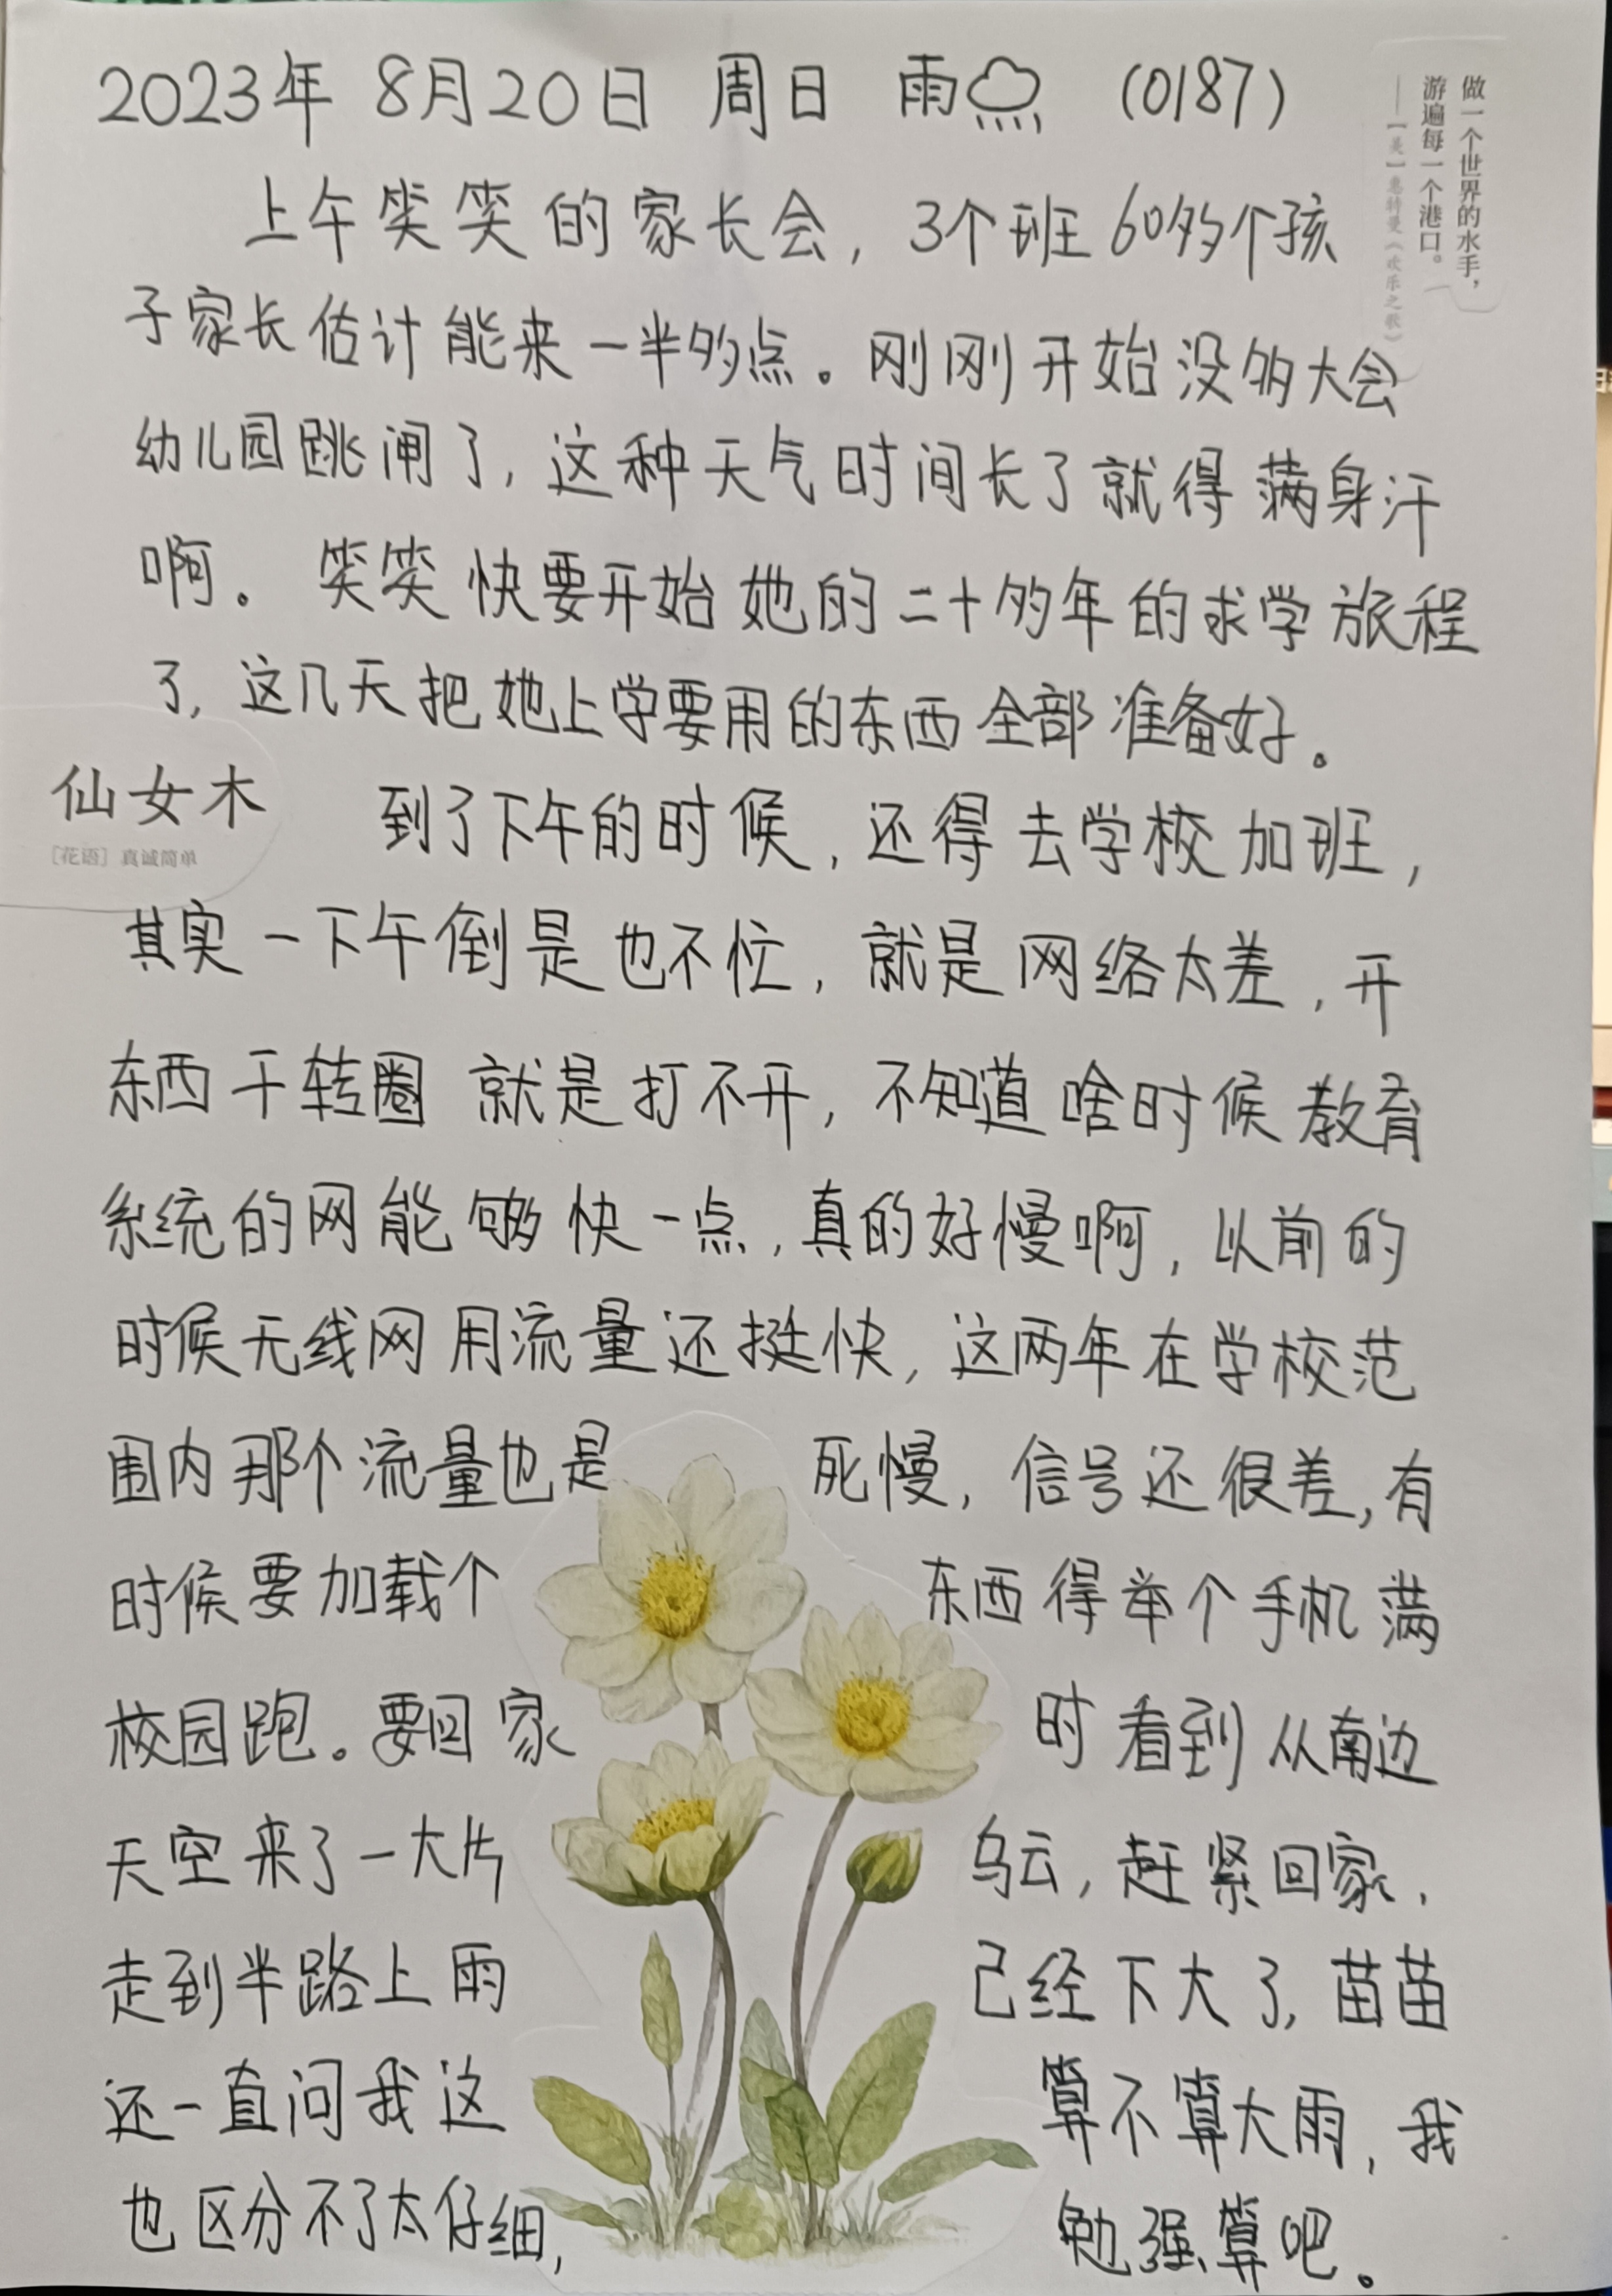 2023年 8月20日 周日 雨 (0187)
做一个世界的水手，
游遍每一个港口。
——［美］惠特曼《欢乐之歌》
上午笑笑的家长会，3个班60多个孩
子家长估计能来一半多点。刚刚开始没多大会
幼儿园跳闸了，这种天气时间长了就得满身汗
啊。笑笑快要开始她的二十多年的求学旅程
了，这几天把她上学要用的东西全部准备好。
仙女木
［花语］真诚简单
到了下午的时候，还得去学校加班，
其实一下午倒是也不忙，就是网络太差，开
东西干转圈就是打不开，不知道啥时候教育
系统的网能够快一点，真的好慢啊，以前的
时候无线网用流量还挺快，这两年在学校范
围内那个流量也是死慢，信号还很差，有
时候要加载个东西得举个手机满
校园跑。要回家时看到从南边
天空来了一大片乌云，赶紧回家，
走到半路上雨已经下大了，苗苗
还一直问我这算不算大雨，我
也区分不了太仔细，勉强算吧。